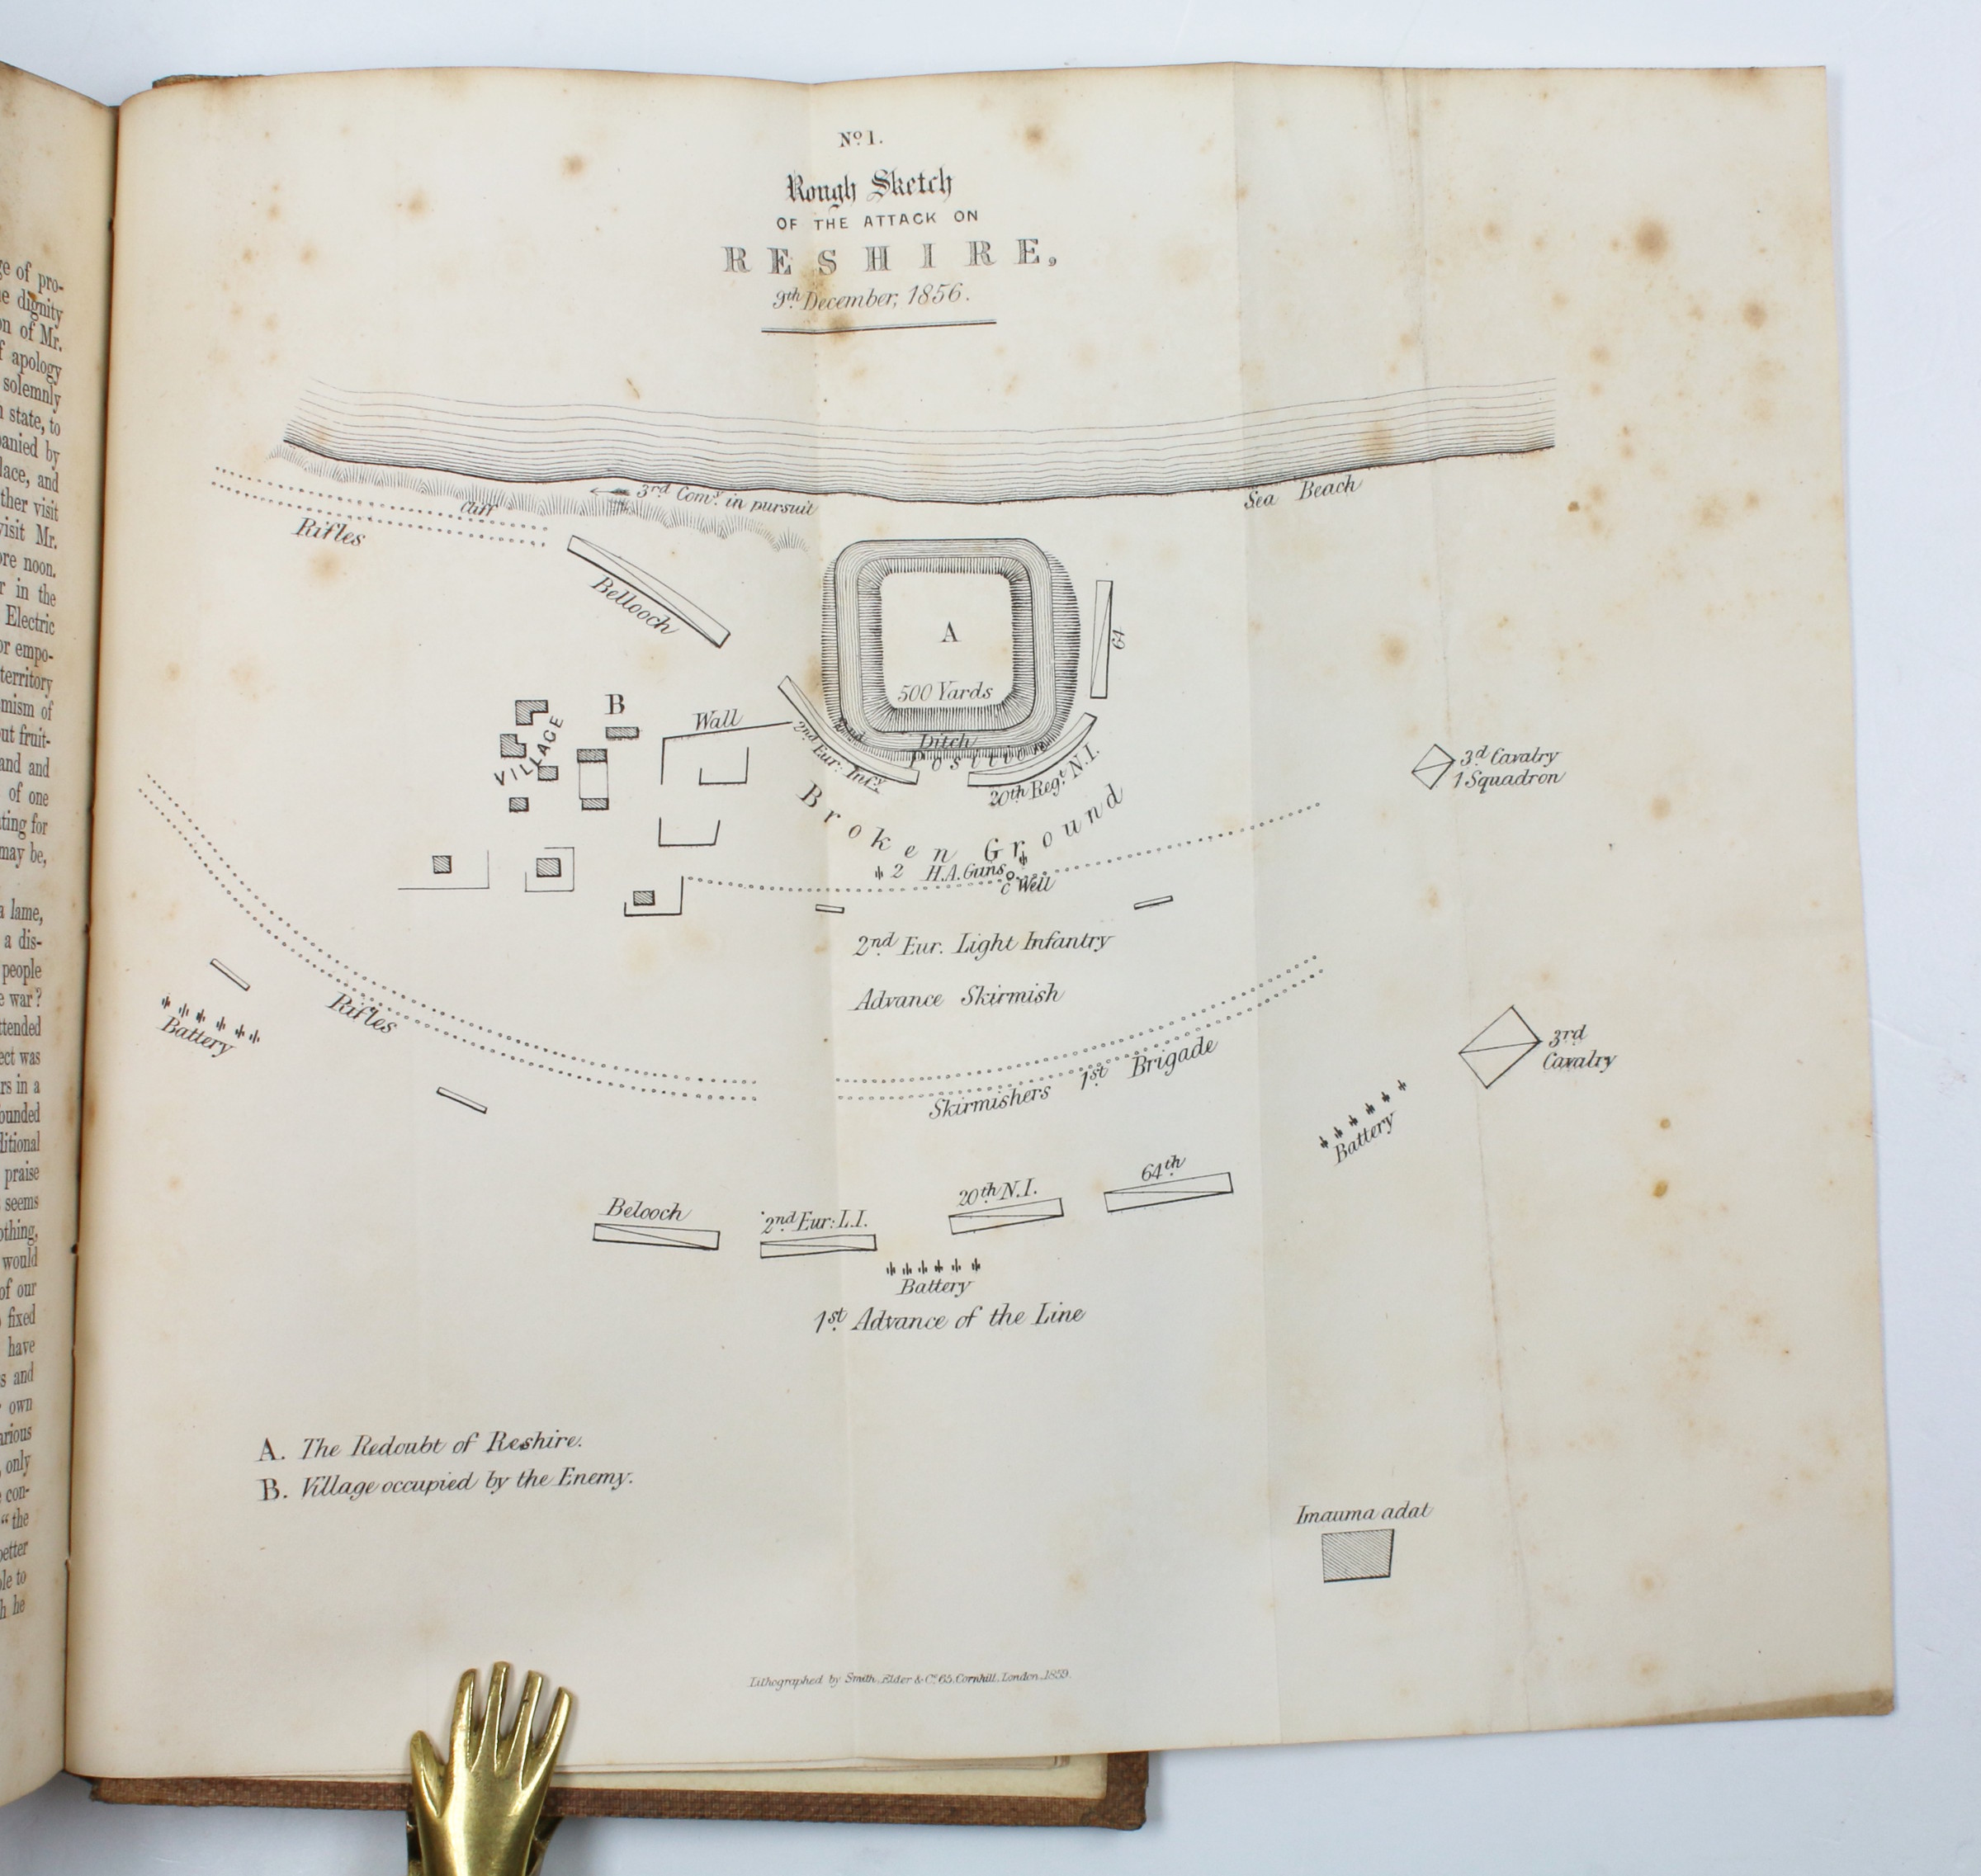 ge of pro-
e dignity
on of Mr.
f apology
solemnly
n state, to
panied by
lace, and
ther visit
visit Mr.
ore noon.
r in the
Electric
or empo-
territory
mism of
out fruit-
and and
of one
ting for
may be,
a lame,
a dis-
people
e war?
ttended
ect was
rs in a
ounded
ditional
praise
seems
othing,
would
of our
fixed
have
s and
own
arious
only
con-
“the
better
ble to
h he
No. 1.
Rough Sketch
OF THE ATTACK ON
RESHIRE,
9th December, 1856.
3rd Comy. in pursuit
Sea Beach
Cliff
Rifles
Bellooch
A
64
500 Yards
B
VILLAGE
Wall
Ditch
2nd Position
2nd Eur: Infy.
20th Regt. N.I.
3d Cavalry
1 Squadron
Broken Ground
2 H.A. Guns
C Well
2nd Eur. Light Infantry
Advance Skirmish
Rifles
Battery
Skirmishers 1st Brigade
3rd
Cavalry
Battery
Belooch
2nd Eur: L.I.
20th N.I.
64th
Battery
1st Advance of the Line
A. The Redoubt of Reshire.
B. Village occupied by the Enemy.
Imauma adat
Lithographed by Smith, Elder & Co. 65, Cornhill, London. 1859.